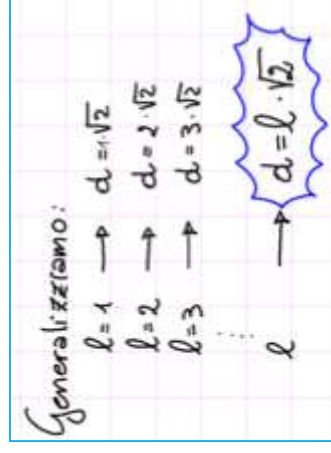 Generalizziamo:
l = 1 → d = 1·√2
l = 2 → d = 2·√2
l = 3 → d = 3·√2
⋮
l → d = l·√2